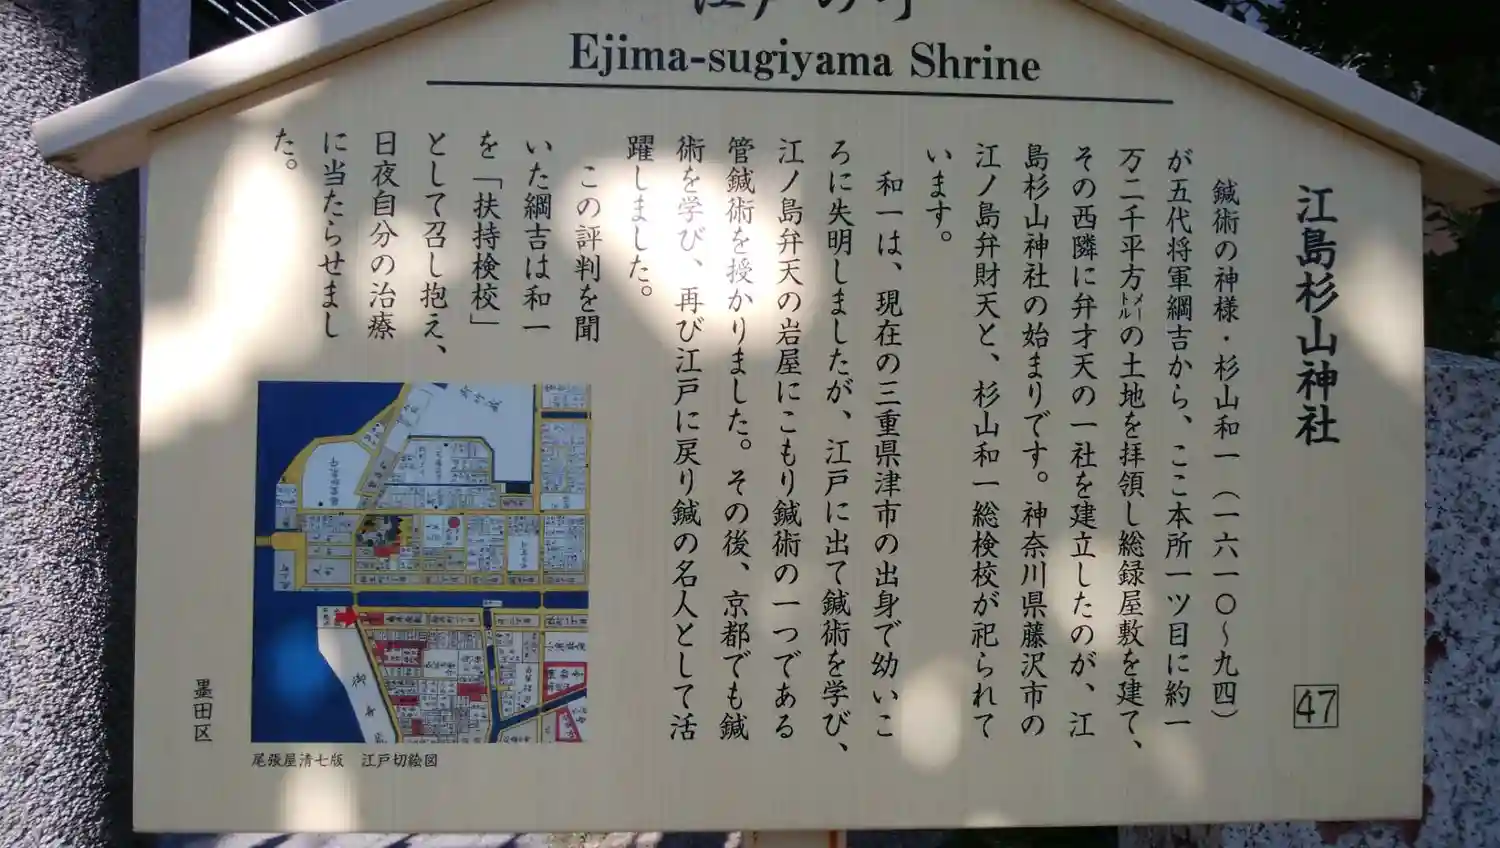 Ejima-sugiyama Shrine
江島杉山神社
47
鍼術の神様・杉山和一（一六一〇～九四）
が五代将軍綱吉から、ここ本所一ツ目に約一
万二千平方メートルの土地を拝領し総録屋敷を建て、
その西隣に弁才天の一社を建立したのが、江
島杉山神社の始まりです。神奈川県藤沢市の
江ノ島弁財天と、杉山和一総検校が祀られて
います。
和一は、現在の三重県津市の出身で幼いこ
ろに失明しましたが、江戸に出て鍼術を学び、
江ノ島弁天の岩屋にこもり鍼術の一つである
管鍼術を授かりました。その後、京都でも鍼
術を学び、再び江戸に戻り鍼の名人として活
躍しました。
この評判を聞
いた綱吉は和一
を「扶持検校」
として召し抱え、
日夜自分の治療
に当たらせまし
た。
尾張屋清七版　江戸切絵図
墨田区